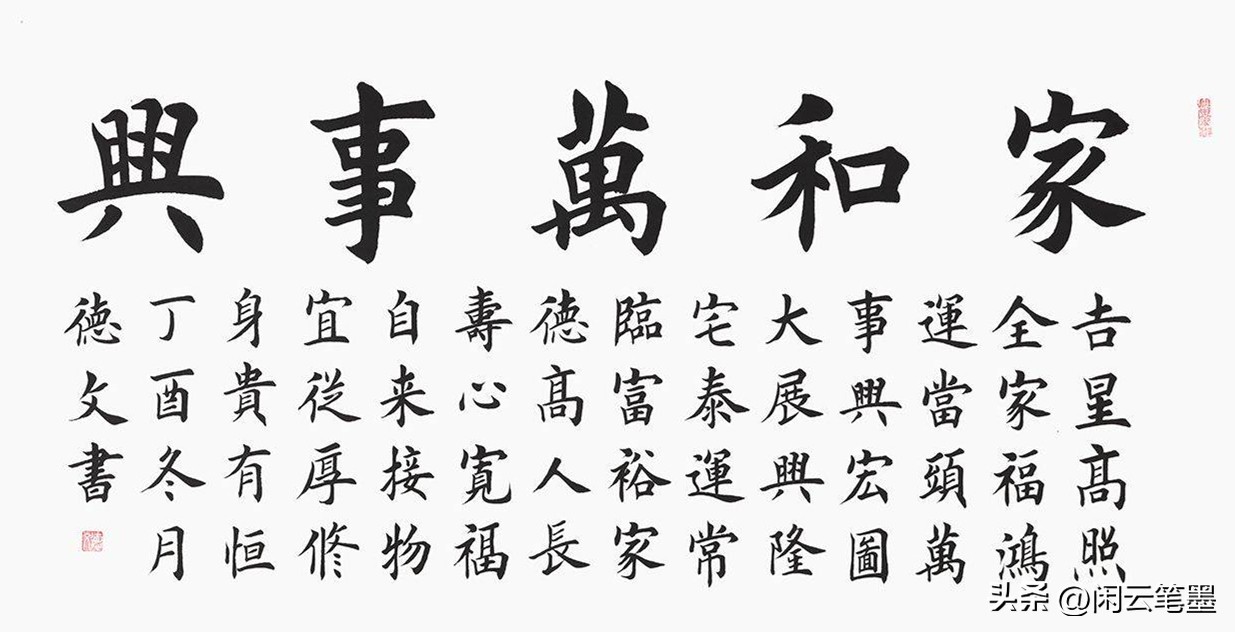 家和萬事興
吉星高照
全家福鴻
運當頭萬
事興宏圖
大展興隆
宅泰運常
臨富裕家
德高人長
壽心寬福
自来接物
宜從厚修
身貴有恒
丁酉冬月
德文書
头条 @闲云笔墨